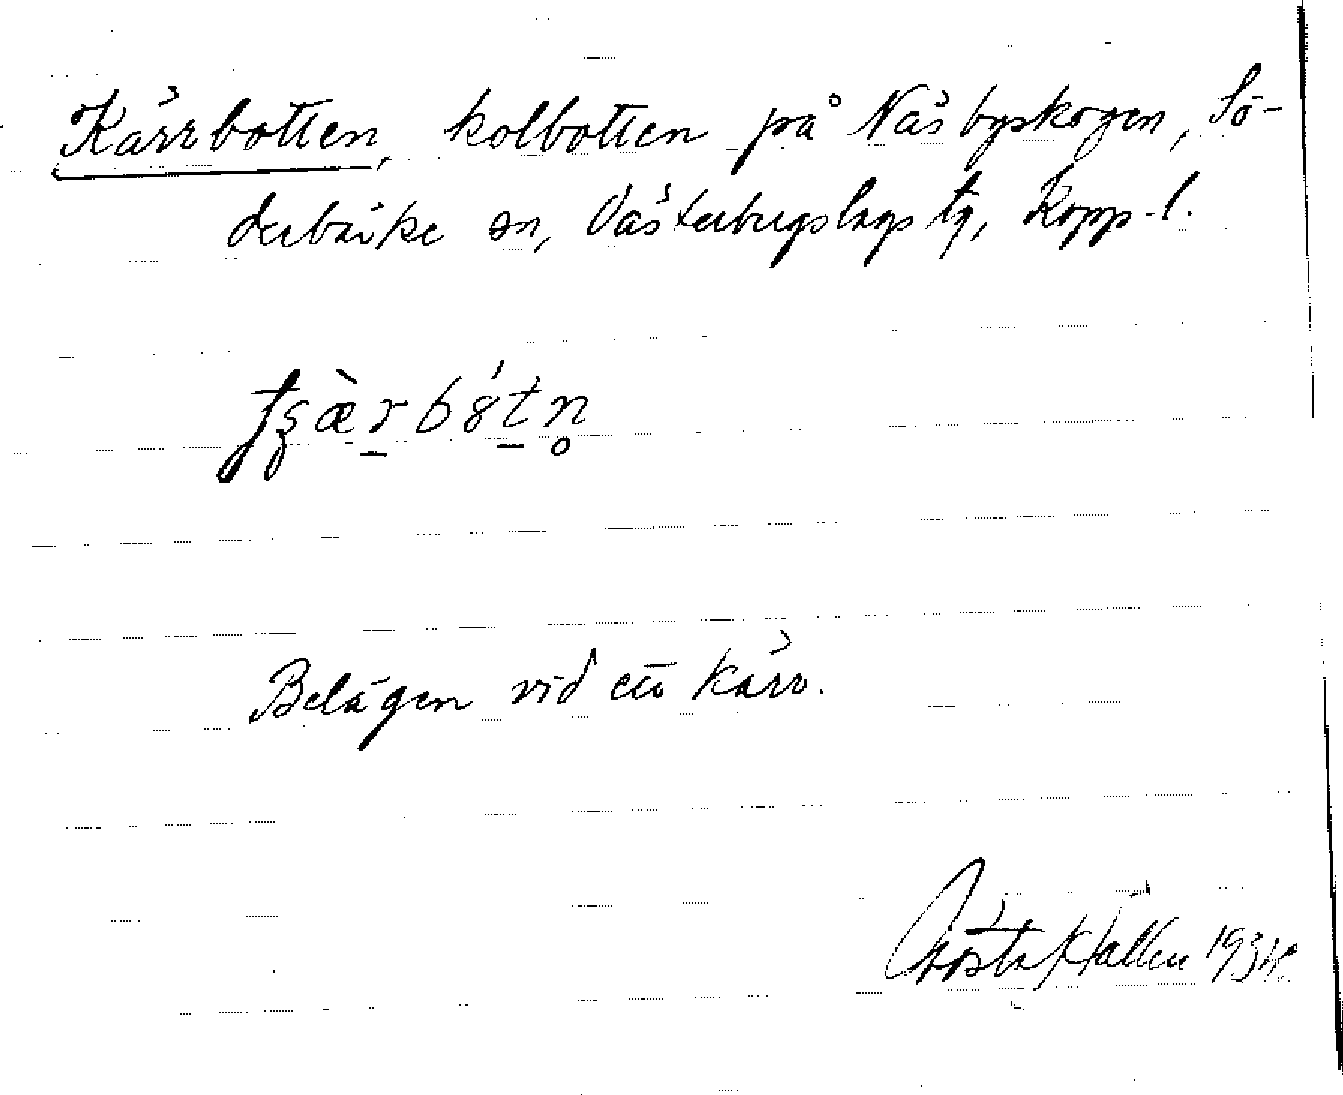 Kärrbotten, kolbotten på Näsbyskogen, Sö-
derbärke sn, Västerbergslags tg, Kopp. l.
Belägen vid ett kärr.
Gösta Källén 1934.